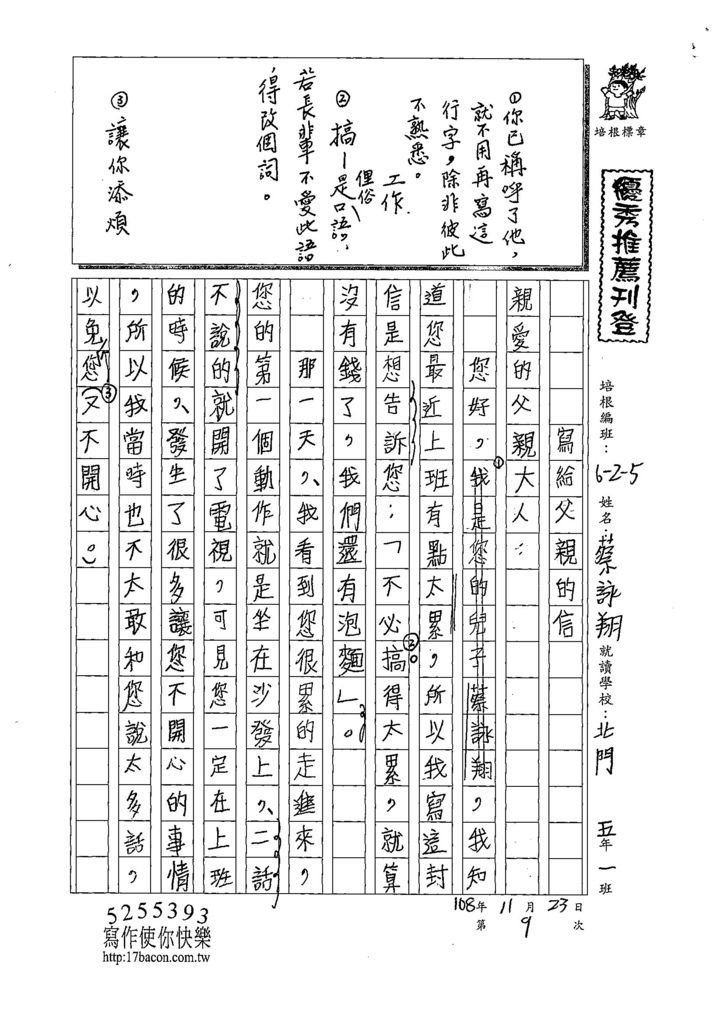 培根標章
優秀推薦刊登
培根編班：6-2-5 姓名：蔡詠翔 就讀學校：北門 五年一班
108年11月23日
第9次
①你已稱呼了他，
就不用再寫這
行字，除非彼此
不熟悉。
工作
②搞—是口語，
俚俗
若長輩不愛此語
得改個詞。
③讓你添煩
寫給父親的信
親愛的父親大人：
您好，①我是您的兒子蔡詠翔，我知
道您最近上班有點太累，所以我寫這封
信是想告訴您：「不必搞②得太累，就算
沒有錢了，我們還有泡麵」。
那一天，我看到您很累的走進來，
您的第一個動作就是坐在沙發上，二話
不說的就開了電視，可見您一定在上班
的時候，發生了很多讓您不開心的事情
，所以我當時也不太敢和您說太多話，
以免您③又不開心。
5255393
寫作使你快樂
http:17bacon.com.tw